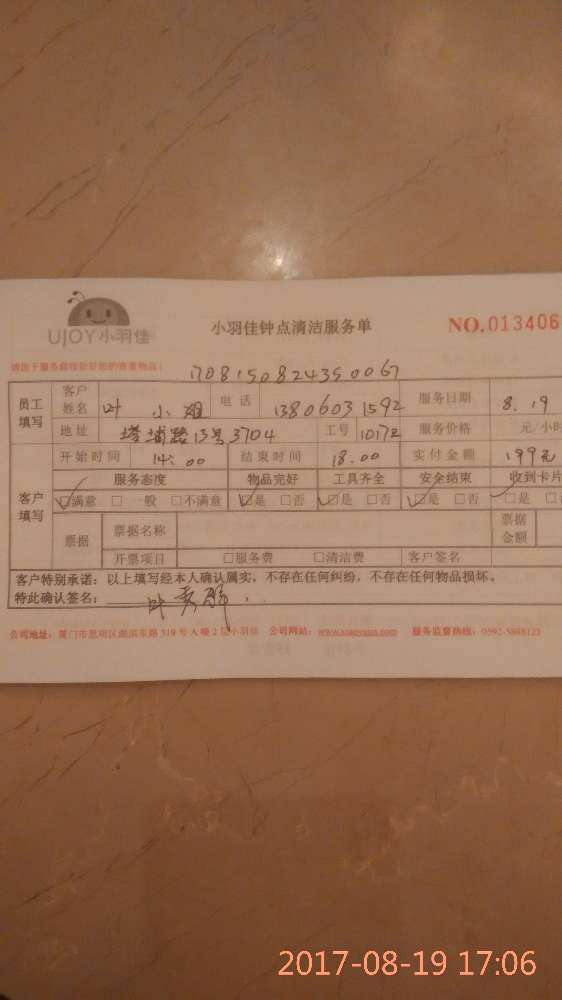 UJOY小羽佳
小羽佳钟点清洁服务单
NO.013406
请您于服务前收验好您的贵重物品:
1708150824350067
员工填写 客户姓名 叶小姐 电话 13806031592 服务日期 8.19
地址 塔埔路13号3704 工号 10172 服务价格 元/小时
开始时间 14:00 结束时间 18.00 实付金额 199元
客户填写 服务态度 物品完好 工具齐全 安全结束 收到卡片
☑满意 □一般 □不满意 ☑是 □否 ☑是 □否 ☑是 □否 ☑是
票据 票据名称 票据金额
开票项目 □服务费 □清洁费 客户签名
客户特别承诺:以上填写经本人确认属实,不存在任何纠纷,不存在任何物品损坏。
特此确认签名:叶
公司地址:厦门市思明区湖滨东路319号A幢2层小羽佳 公司网站: 服务监督热线:0592-5888123
2017-08-19 17:06